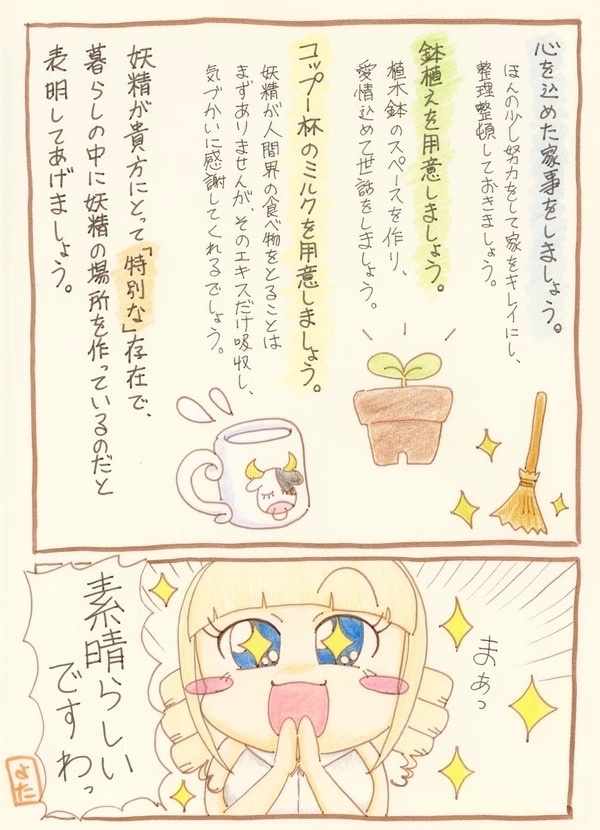 心を込めた家事をしましょう。
ほんの少し努力をして家をキレイにし、
整理整頓しておきましょう。
鉢植えを用意しましょう。
植木鉢のスペースを作り、
愛情込めて世話をしましょう。
コップ一杯のミルクを用意しましょう。
妖精が人間界の食べ物をとることは
まずありませんが、そのエキスだけ吸収し、
気づかいに感謝してくれるでしょう。
妖精が貴方にとって「特別な」存在で、
暮らしの中に妖精の場所を作っているのだと
表明してあげましょう。
まぁっ
素晴らしい
ですわっ
よた